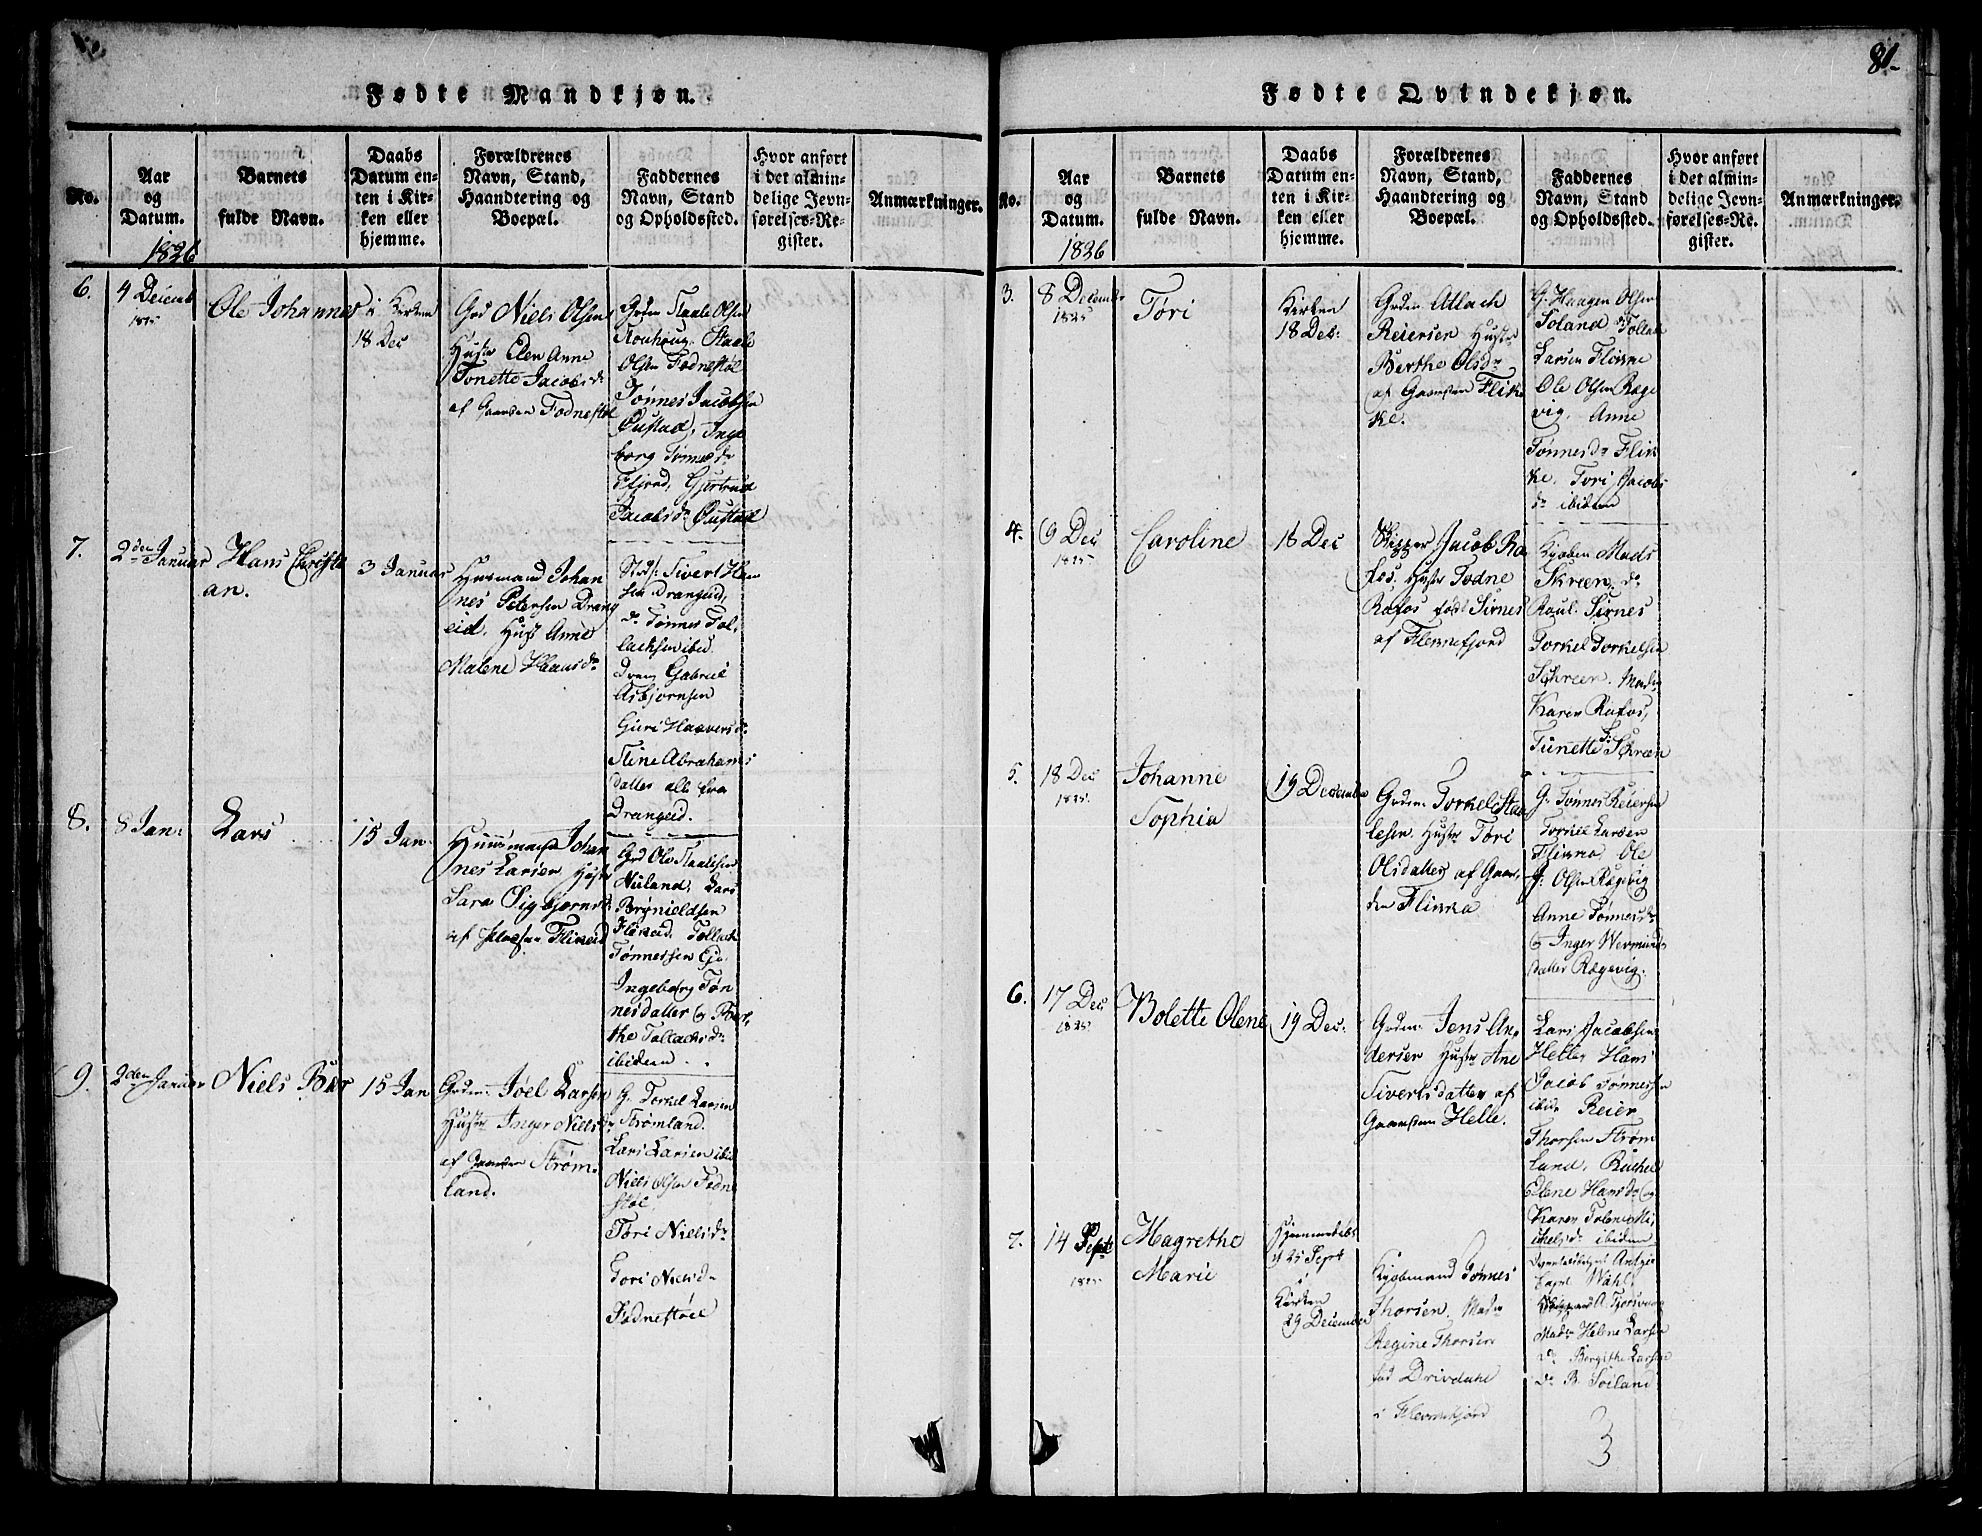 Fødte Mandkjøn.
No.
Aar
og
Datum.
1826
Barnets
fulde Navn.
Daabs
Datum en-
ten i Kir-
ken eller
hjemme.
Forældrenes
Navn, Stand,
Haandtering og
Boepæl.
Faddernes
Navn, Stand
og Opholdssted.
Hvor anført
i det almin-
delige Jevn-
førelses-Re-
gister.
Anmærkninger.
6.
4 Decemb
1825
Ole Johannes
i Kirken
18 Dec
Grd Niels Olsen
Hustr Elen Anne
Tonette Jacobsdr
af Gaarden Fodnestøl
Olsen Fodnestøl
Tønnes Jacobsen
Øustad, Inge
borg Tønnesdr
Gjertrud
Jacobsdr Øustad
7.
2den Januar
Hans Christi
an.
3 Januar
Huusmand Johan
nes Petersen Drang
eid. Hust Anne
Malene Hansdr
Sivert Han
sen Drangeid,
dr Tønnes Tol,
lachsen ibid.
Dreng Gabriel
Asbjørnsen
Guri Haaversdr
Stine Abrahams
datter alle fra
Drangeid.
8.
8 Jan:
Lars
15 Jan
Huusmand Johan
nes Larsen Hustr
Sara Sigbjørnsdr
af Fliceid
Grd Ole Staalesen
Nuland, Lars
Brynieldsen
Flikeid, Tollach
Tønnessen
Ingeborg Tøn
nesdatter og Ber,
the Tollachsdr
ibidem.
9.
2den Januar
Niels Baer
15 Jan
Grdm: Joel Larsen
Hustr Inger Nielsdr
af Gaarden Strøm
land.
G. Torkel Larsen
Strømland.
Lars Larsen ibid
Niels Olsen Fodne
støl.
Tori Nielsdr
Tori Nielsdr
Fodnestøel
81
Fødte Qvindekjøn.
No.
Aar
og
Datum.
1826
Barnets
fulde Navn.
Daabs
Datum en-
ten i Kir-
ken eller
hjemme.
Forældrenes
Navn, Stand,
Haandtering og
Boepæl.
Faddernes
Navn, Stand
og Opholdssted.
Hvor anført
i det almin-
delige Jevn-
førelses-Re-
gister.
Anmærkninger.
3.
8 December
1825
Tøri
Kirken
18 Dec:
Grdm Atlach
Reiersen Hustr
Berthe Olsdr
af Gaarden Flik
ke.
G. Haagen Olsen
Soland Tollak
Larsen Flikke
Ole Olsen Ræge
vig, Anne
Tønnesdr Flik
ke. Tori Jacobs
dr ibidem
4.
9 Dec
1825
Caroline
18 Dec
Skipper Jacob Ra
fos, Hustr Todne
Rafos født Sirnes
af Flekkefjord
Kjøbm Mads
Skreen. dr
Roul. Sirnes
Torkel Torkelsen
Schreen. Mad
Karen Rafos,
Tonette Schreen
5.
18 Dec
1825
Johanne
Sophia
19 December
Grdm: Torkel Staa
lesen Hustr Tøri
Olsdatter af Gaar,
den Flikka
G. Tønnes Reiersen
Torkel Larsen
Flikka, Ole
Olsen Rægevig
Anne Tønnesdr
og Inger Wermunds
datter Rægevig.
6.
17 Dec
1825
Bolette Olene
19 Dec:
Grdm: Jens An,
dersen Hustr Ane
Sivertsdatter af
Gaarden Helle.
Lars Jacobsen
Helle, Hans
Jacob Tønnessen
ibid. Reier
Thorsen Strøm
land, Rachel
Olene Hansdr og
Karen Tolene Mi,
ikelsdr ibidem
7.
14 Sept
1825
Magrethe
Marie
Hjemmedøbt
d 25 Sept
i
Kirken
29 December
Kjøbmand Tønnes
Thorsen. Mad
Regine Thorsen
fød Drivdahl
i Flekkefjord
Wahl
A. Tjorsvaag
Madm Helene Larsen
dr Bergithe Larsen
dr B. Soiland
3
3